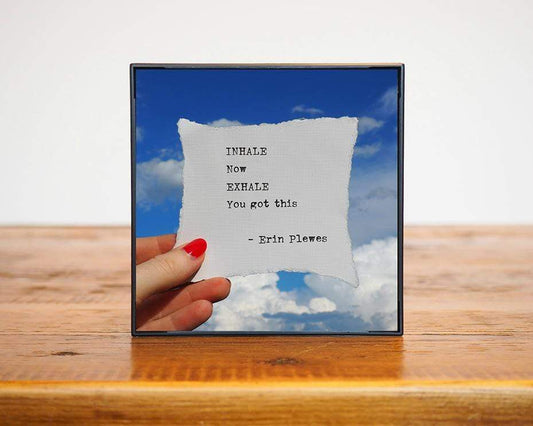 INHALE
Now
EXHALE
You got this
- Erin Plewes